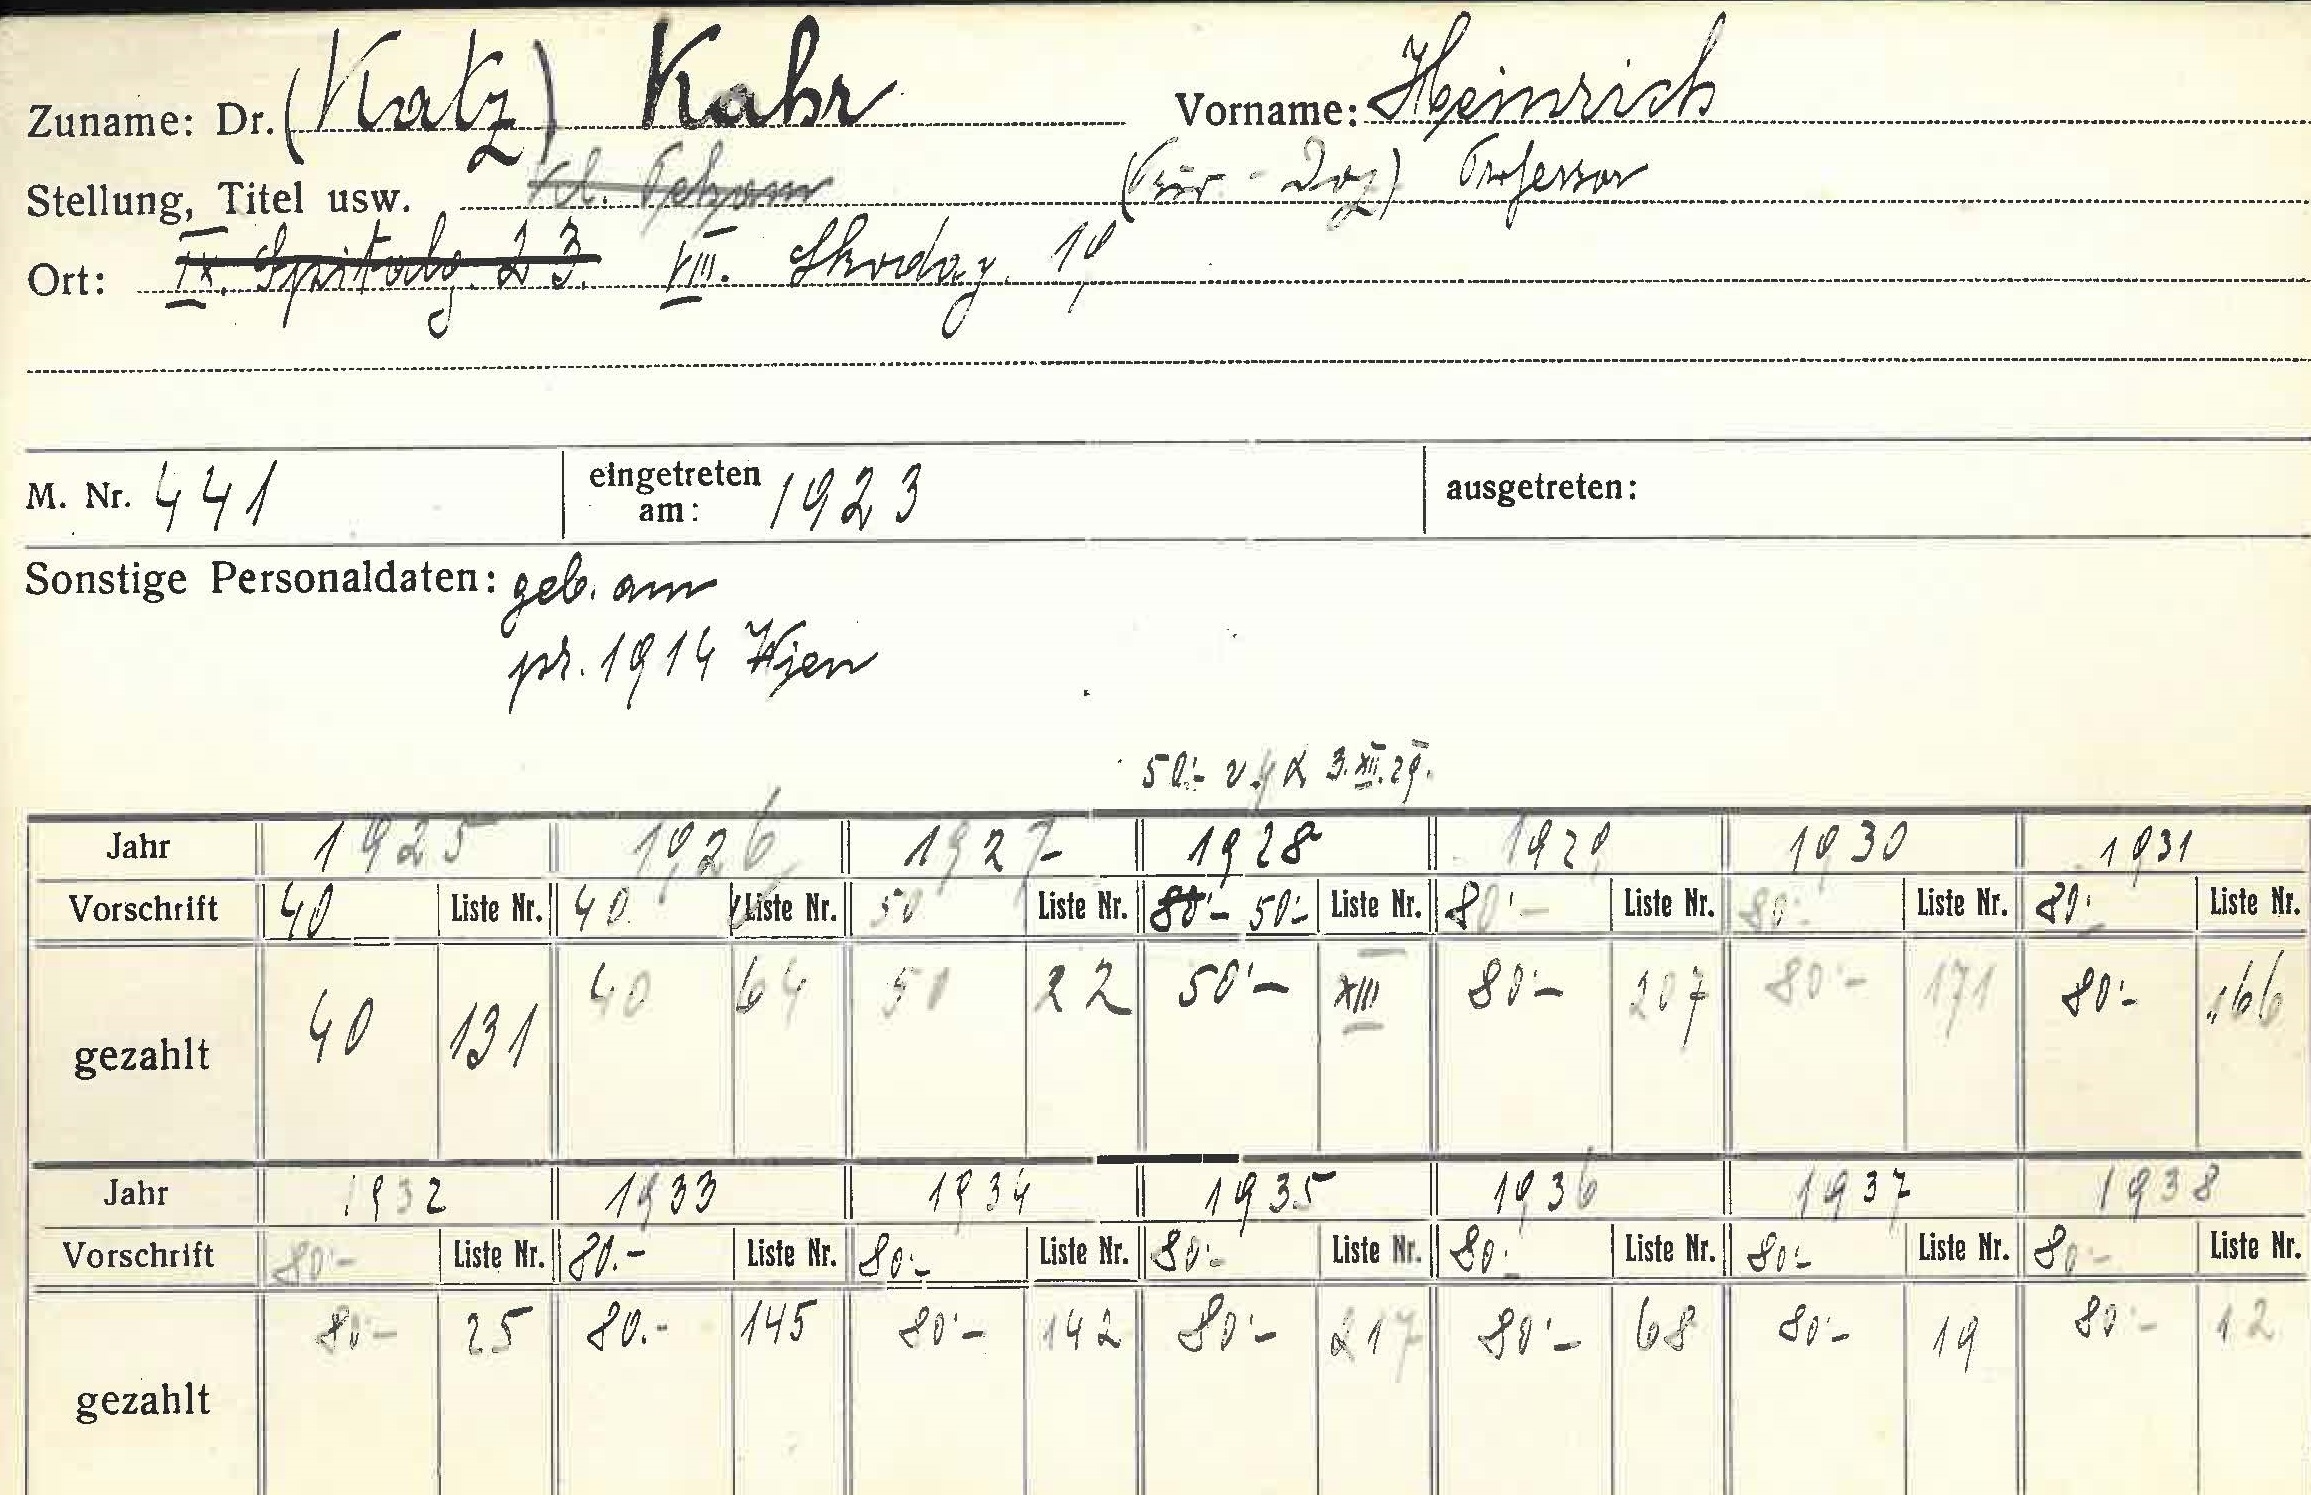 Zuname: Dr. (Katz) Kahr Vorname: Heinrich
Stellung, Titel usw. Professor
Ort: IX. Spitalg. 23. VIII. Skodag. 19
M. Nr. 441 eingetreten am: 1923 ausgetreten:
Sonstige Personaldaten: geb. am
pr. 1914 Wien
50.- 3. XII. 29.
Jahr 1925 1926 1927 1928 1929 1930 1931
Vorschrift 40 Liste Nr. 40. Liste Nr. 50 Liste Nr. 80.- 50.- Liste Nr. 80.- Liste Nr. 80.- Liste Nr. 80.- Liste Nr.
gezahlt 40 131 40 64 50 22 50.- XIII 80.- 207 80.- 171 80.- 166
Jahr 1932 1933 1934 1935 1936 1937 1938
Vorschrift 80.- Liste Nr. 80.- Liste Nr. 80.- Liste Nr. 80.- Liste Nr. 80.- Liste Nr. 80.- Liste Nr. 80.- Liste Nr.
gezahlt 80.- 25 80.- 145 80.- 142 80.- 217 80.- 68 80.- 19 80.- 12